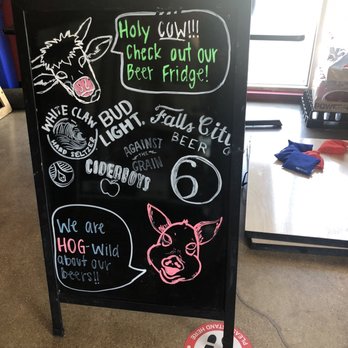 Holy COW!!!
Check out our
Beer Fridge!
WHITE CLAW
HARD SELTZER
BUD
LIGHT.
Falls City
BEER
AGAINST
THE
GRAIN
CIDERBOYS
6
We are
HOG-Wild
about our
beers!!
PLEASE STAND HERE